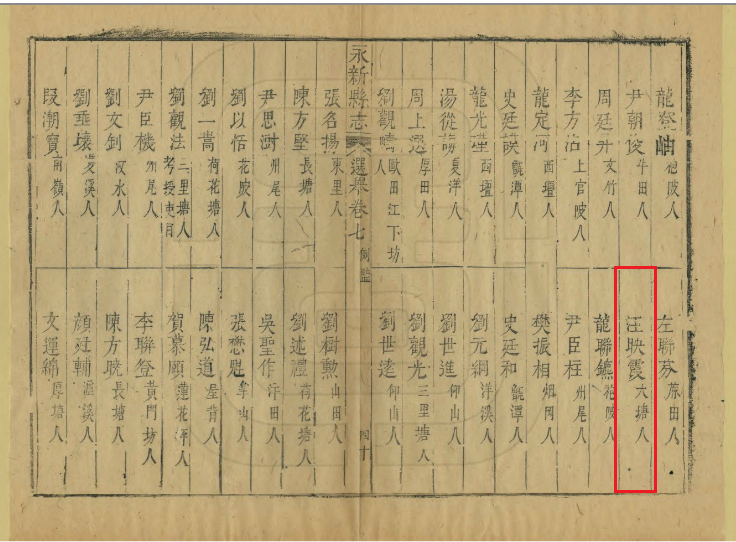 龍登岫 [?]陂人
尹朝俊 牛田人
周廷升 文竹人
李方治 上官陂人
龍定河 西壇人
史廷葵 甑潭人
龍光 西壇人
湯從 夏洋人
周上 厚田人
劉觀 歐田江下坊人
永新縣志 選舉卷七 例監 四十
張名揚 東里人
陳方堅 長塘人
尹思澍 州尾人
劉以伍 花陂人
劉一嵩 荷花塘人
劉觀法 三里塘人 考授吏目
尹臣機 州尾人
劉文釗 汶水人
劉垂壤 溪人
段潮寶 南嶺人
左聯芬 原田人
汪映霞 六塘人
龍聯鑣 花陂人
尹臣柱 州尾人
樊振相 烟岡人
史廷和 甑潭人
劉元綱 洋溪人
劉世進 仰山人
劉觀光 三里塘人
劉世逵 仰山人
劉樹勲 山田人
劉述禮 荷花塘人
吳聖作 汴田人
張懋魁 牟山人
陳弘道 屋背人
賀慕願 蓮花人
李聯登 黃門坊人
陳方曉 長塘人
顔廷輔 溪人
文運錦 厚塘人